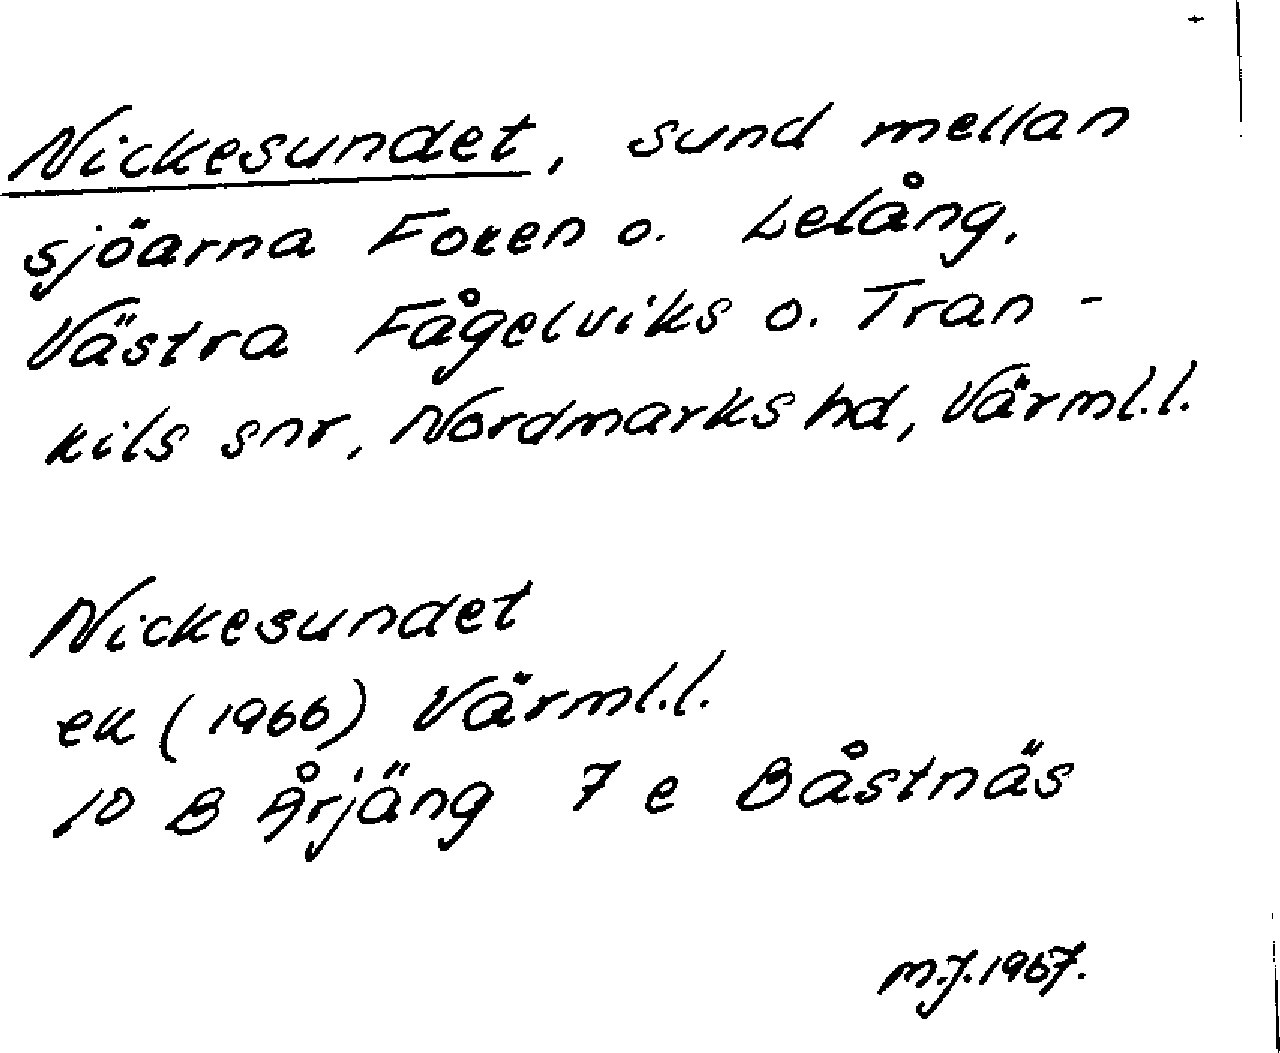 Nickesundet, sund mellan
sjöarna Foxen o. Lelång,
Västra Fågelviks o. Tran-
kils snr, Nordmarks hd, Värml.l.
Nickesundet
ek (1966) Värml.l.
10 B Årjäng 7 e Båstnäs
M.J. 1967.